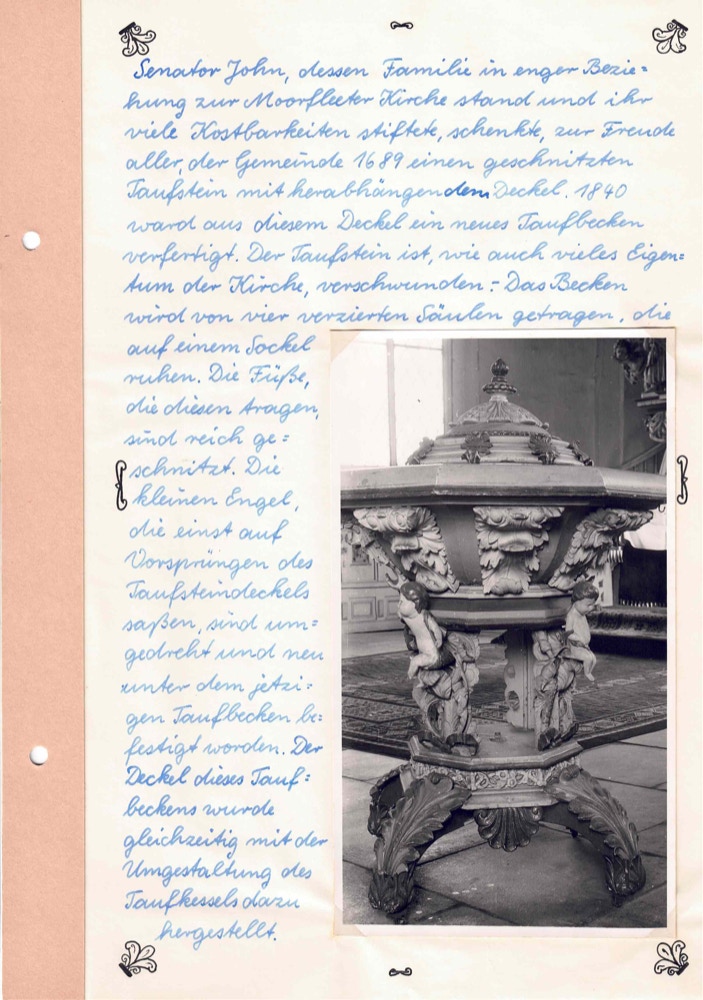 Senator John, dessen Familie in enger Bezie=
hung zur Moorfleeter Kirche stand und ihr
viele Kostbarkeiten stiftete, schenkte, zur Freude
aller, der Gemeinde 1689 einen geschnitzten
Taufstein mit herabhängendem Deckel. 1840
ward aus diesem Deckel ein neues Taufbecken
verfertigt. Der Taufstein ist, wie auch vieles Eigen=
tum der Kirche, verschwunden.- Das Becken
wird von vier verzierten Säulen getragen, die
auf einem Sockel
ruhen. Die Füße,
die diesen tragen,
sind reich ge=
schnitzt. Die
kleinen Engel,
die einst auf
Vorsprüngen des
Taufsteindeckels
saßen, sind um=
gedreht und neu
unter dem jetzi=
gen Taufbecken be=
festigt worden. Der
Deckel dieses Tauf=
beckens wurde
gleichzeitig mit der
Umgestaltung des
Taufkessels dazu
hergestellt.